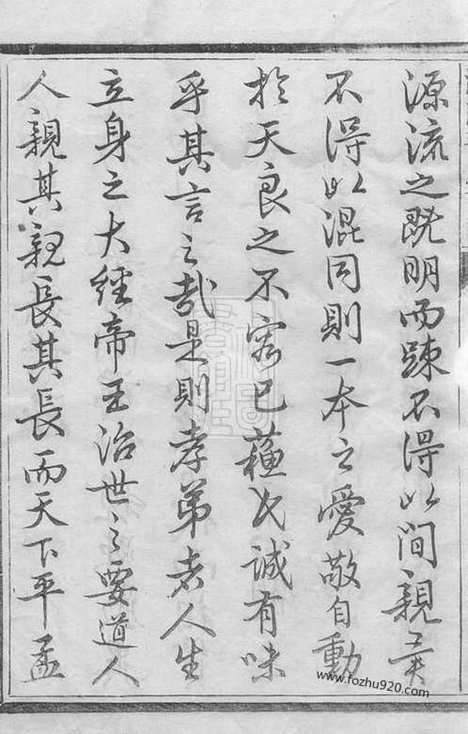 源流之既明而踈不得以間親異
不得以混同則一本之愛敬自動
於天良之不容已蘓氏誠有味
乎其言之哉是則孝弟者人生
立身之大經帝王治世之要道人
人親其親長其長而天下平孟
www.fozhu920.com